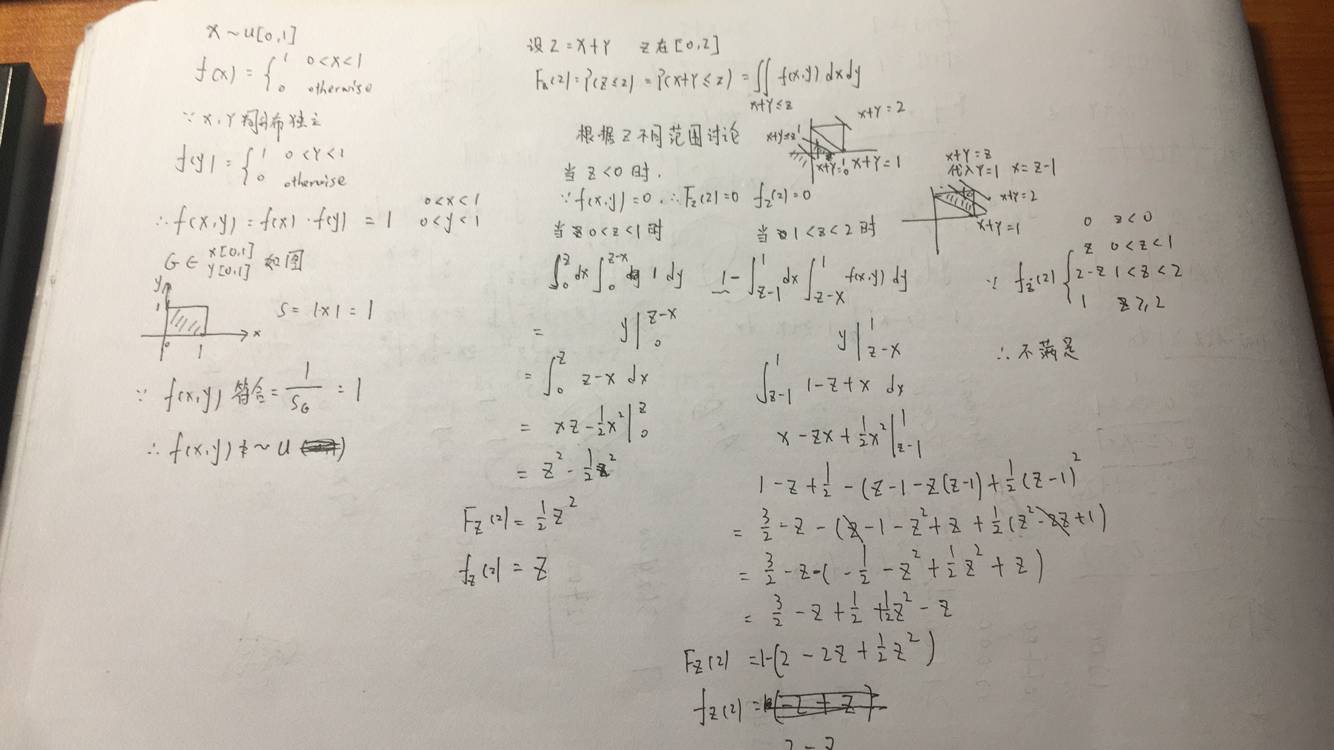 X ~ U[0,1]
f(x) = { 1 0<x<1
0 otherwise
∵ X, Y 同分布独立
f(y) = { 1 0<Y<1
0 otherwise
∴ f(x,y) = f(x)·f(y) = 1 0<x<1
0<y<1
G ∈ x[0,1]
y[0,1] 如图
y
1
x
0 1
S = 1×1 = 1
∵ f(x,y) 符合 = 1/S_G = 1
∴ f(x,y) ~ U
设 Z = X+Y Z 在 [0,2]
F_Z(z) = P(Z≤z) = P(X+Y≤z) = ∬ f(x,y) dxdy
x+Y≤z
根据 Z 不同范围讨论
x+Y=2
x+Y≤z
1
x+Y=0
x+Y=1
当 z<0 时,
∵ f(x,y)=0 ∴ F_Z(z)=0 f_Z(z)=0
当 0<z<1 时
∫_0^z dx ∫_0^{z-x} 1 dy
= y |_0^{z-x}
= ∫_0^z z-x dx
= xz - 1/2 x² |_0^z
= z² - 1/2 z²
F_Z(z) = 1/2 z²
f_Z(z) = z
当 1<z<2 时
1 - ∫_{z-1}^1 dx ∫_{z-x}^1 f(x,y) dy
y |_{z-x}^1
∫_{z-1}^1 1-z+x dx
x - zx + 1/2 x² |_{z-1}^1
1 - z + 1/2 - (z-1-z(z-1) + 1/2 (z-1)²
= 3/2 - z - (z-1-z²+z+1/2 (z²-2z+1)
= 3/2 - z - ( - 1/2 - z² + 1/2 z² + z)
= 3/2 - z + 1/2 + 1/2 z² - z
F_Z(z) = 1-(2-2z+1/2 z²)
f_Z(z) =
2-z
x+Y=z
代入Y=1 x=z-1
x+Y=2
x+Y=1
∵ f_Z(z) { 0 z<0
z 0<z<1
2-z 1<z<2
1 z≥2
∴ 不满足